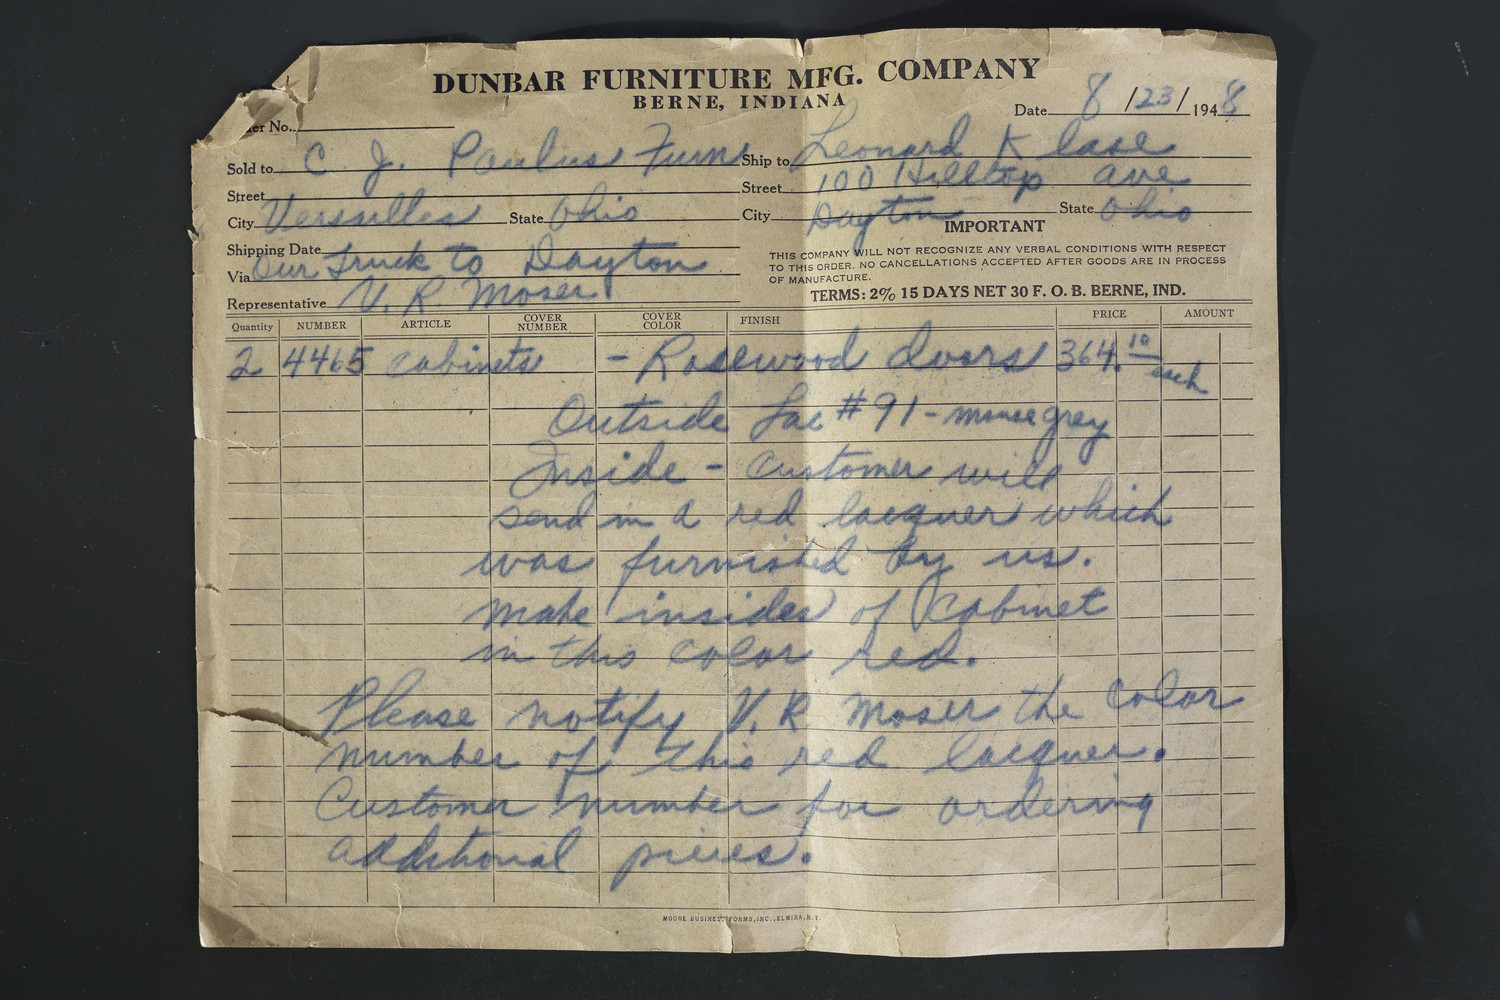 DUNBAR FURNITURE MFG. COMPANY
BERNE, INDIANA
Date 8/23/1948
er No.
Sold to C. J. Paulus Furn Ship to Leonard Klase
Street Street 100 Hilltop ave
City Versailles State Ohio City Dayton State Ohio
IMPORTANT
Shipping Date
THIS COMPANY WILL NOT RECOGNIZE ANY VERBAL CONDITIONS WITH RESPECT
TO THIS ORDER. NO CANCELLATIONS ACCEPTED AFTER GOODS ARE IN PROCESS
OF MANUFACTURE.
Via Our Truck to Dayton
Representative V. R. Moser
TERMS: 2% 15 DAYS NET 30 F. O. B. BERNE, IND.
Quantity NUMBER ARTICLE COVER NUMBER COVER COLOR FINISH PRICE AMOUNT
2 4465 cabinets - Rosewood doors 364.10 each
Outside Lac #91 - mince grey
Inside - Customer will
send in a red lacquer which
was furnished by us.
Make insides of Cabinet
in this color red.
Please notify V. R. Moser the color
number of this red lacquer.
Customer number for ordering
additional pieces.
MOORE BUSINESS FORMS, INC., ELMIRA, N.Y.